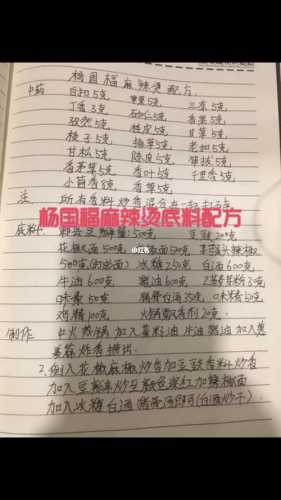 杨国福麻辣烫配方.
中药 白扣5克 草果5克 三奈5克
丁香3克 砂仁5克 香果5克
孜然5克 桂皮5克 甘草5克
枝子5克 5克 老扣5克
甘松5克 陈皮5克 毕拔5克
香茅草5克 香叶5克 千里香5克
小茴香8克 香草5克
注 所有香料
杨国福麻辣烫底料配方
底料 500克 20克
小红书
花椒面500克 面500克 辣椒
500克(打成面) 冰糖250克 白酒600克
牛油600克 猪油600克 3克
味素50克 35克 5克
鸡精100克 火锅飘香剂20克
制作 ①火烧锅加入菜籽油 牛油 猪油 加入
炸香捞出
2.倒入花椒麻椒炒香加豆豉香料炒香
加入豆瓣酱炒至颜色深红加辣椒面
加入冰糖 白酒 即可(白酒炒干)